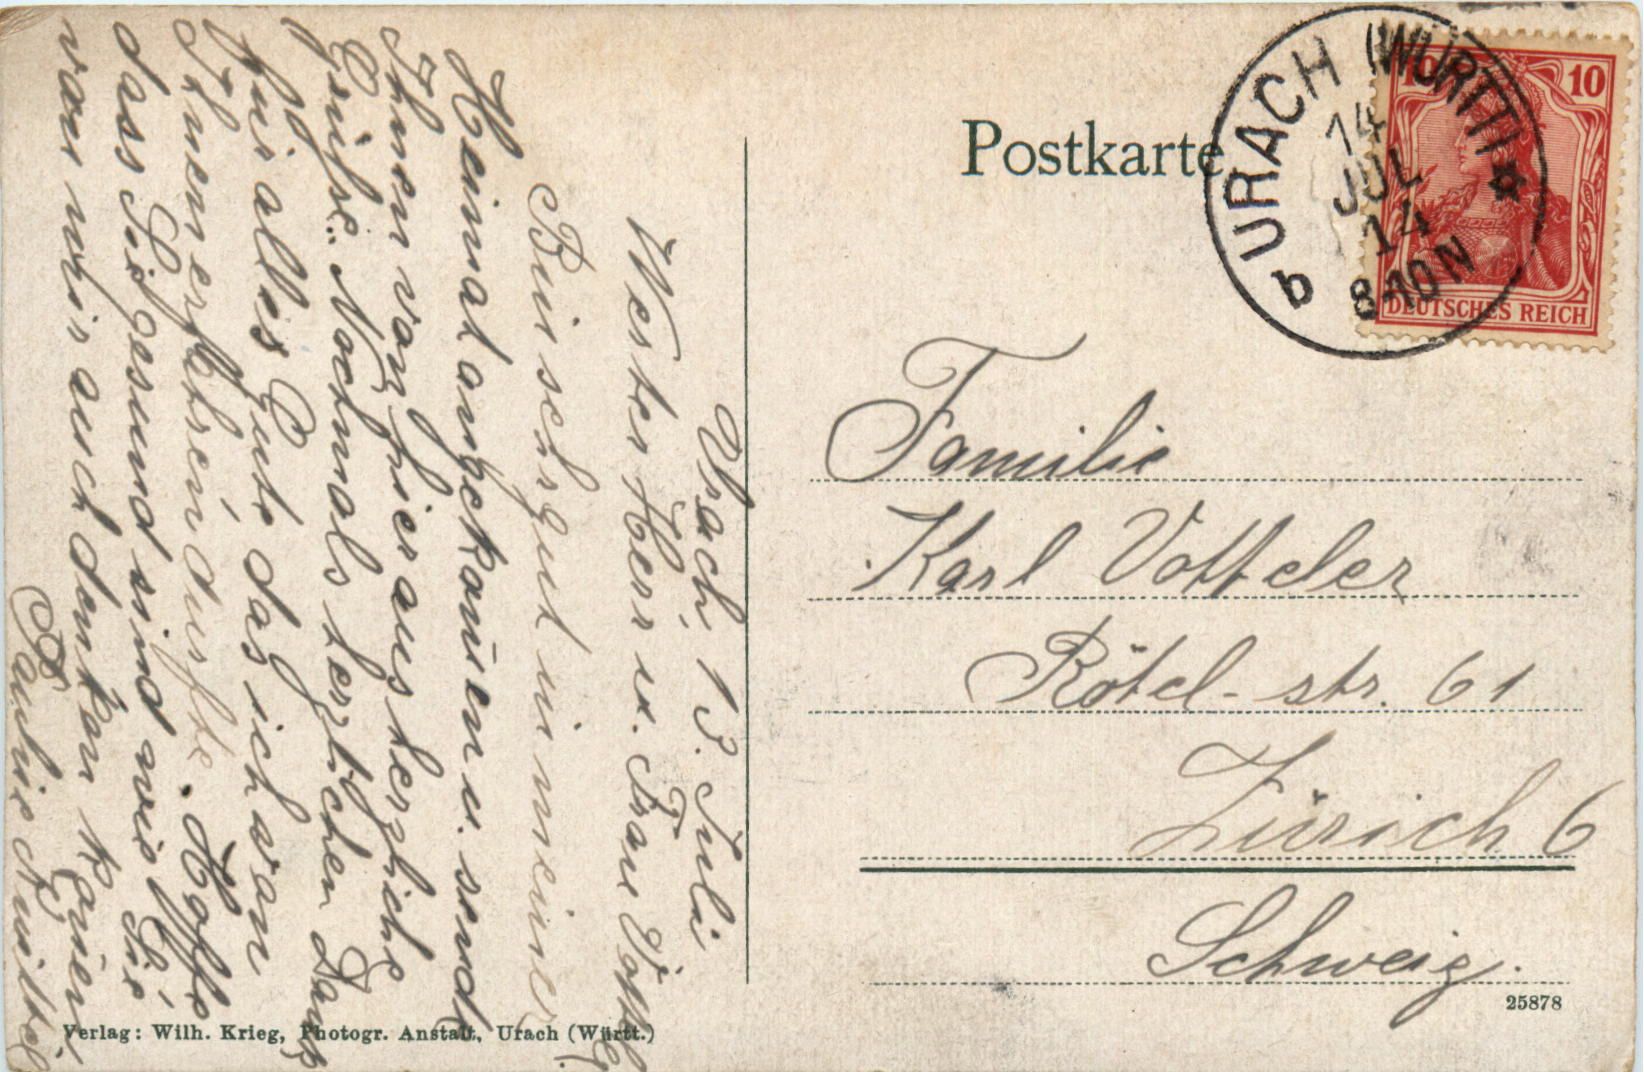 Postkarte
URACH (WÜRTT)
14
JUL
14
8-10N
b
10
DEUTSCHES REICH
Familie
Karl Votteler
Rötel-str. 61
Zürich 6
Schweiz.
25878
Urach, 13. Juli
Werter Herr u. Frau
Bin sehr gut in meiner
Heimat angekomen u. sende
Ihnen von hier aus herzliche
Grüße. Nochmals herzlichen Dank
für alles Gute das ich von
Ihnen erfahren durfte. Hoffe
dass Sie gesund sind wie Sie
von mir auch denken
Verlag: Wilh. Krieg, Photogr. Anstalt, Urach (Württ.)